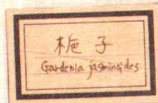 栀子
Gardenia jasminoides